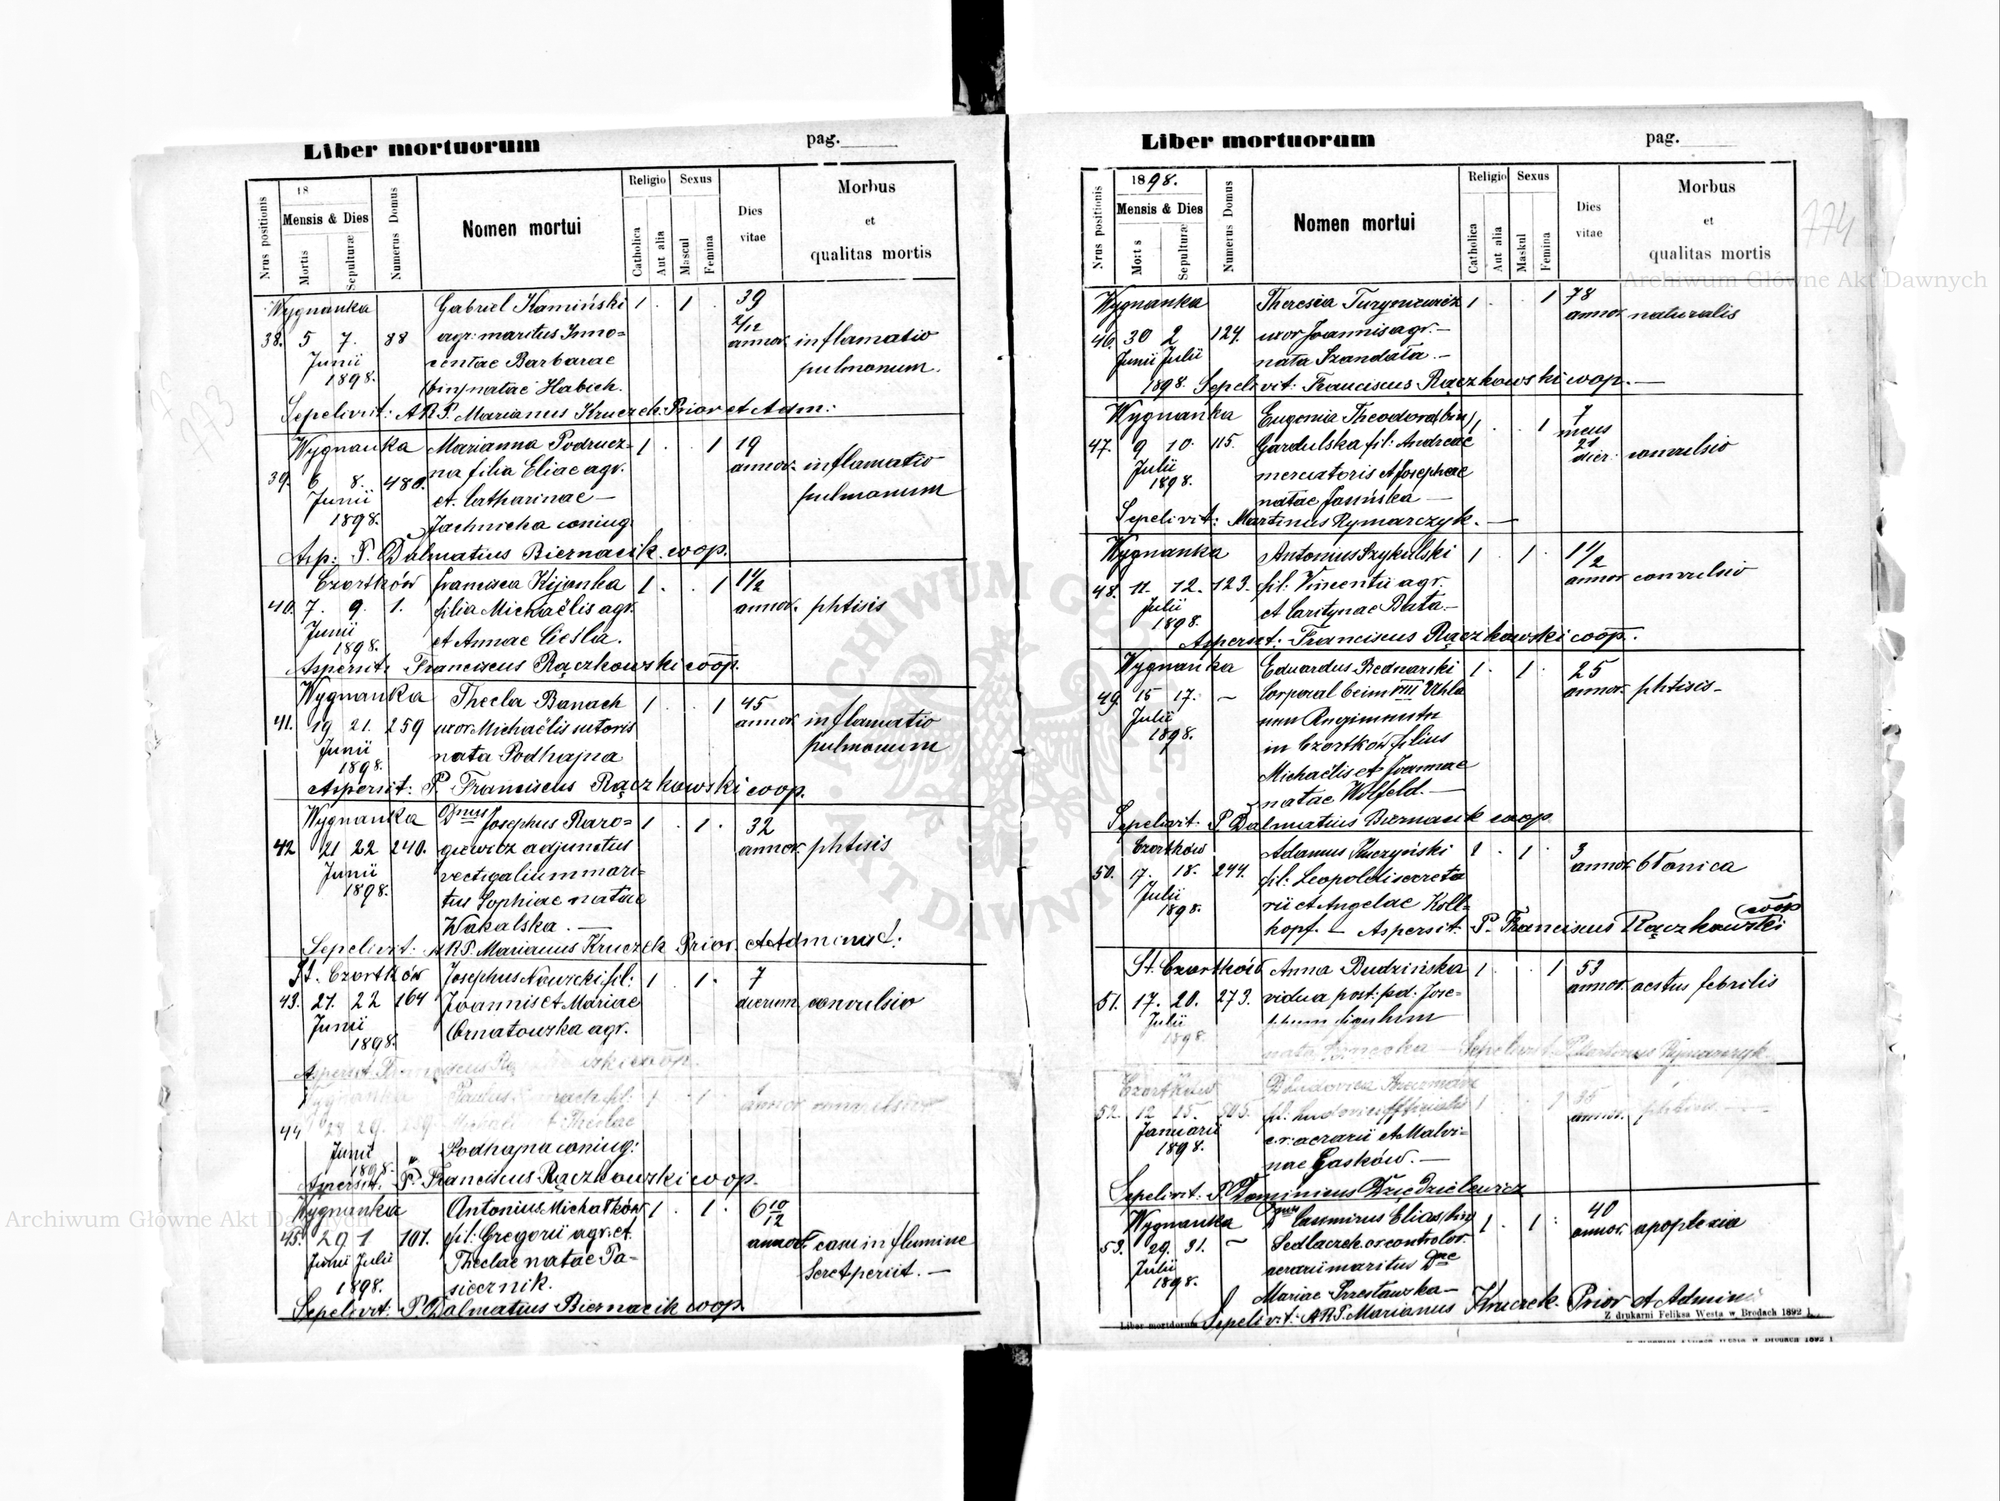 Liber mortuorum
pag.
Nrus positionis
18
Mensis & Dies
Mortis
Sepulturæ
Numerus Domus
Nomen mortui
Religio
Catholica
Aut alia
Sexus
Mascul
Femina
Dies
vitae
Morbus
et
qualitas mortis
773
Wygnanka Gabriel Kamiński 1 . 1 . 39
38. 5 7. 88 agr: maritus Inno= 2/12 annor. inflamatio
Junii centae Barbarae pulmonum.
1898. (bin) natae Habich.
Sepelivit: A.R.P. Marianus Kruczek Prior et Adm:
Wygnanka Marianna Podrucz= 1 . . 1 19
39. 6 8. 480. na filia Eliae agr. annor. inflamatio
Junii et Catharinae — pulmonum
1898. Jachnicka coniug.
Asp: P. Dalmatius Biernacik coop.
Czortków Francisca Kijanka 1 . . 1 1 1/2
40. 7. 9. 1. filia Michaëlis agr. annor. phtisis
Junii et Annae Cieśla.
1898.
Aspersit: Franciscus Rączkowski coop.
Wygnanka Thecla Banach 1 . . 1 45
41. 19 21. 259 uxor Michaëlis sutoris annor. inflamatio
Junii nata Podhajna pulmonum
1898.
Aspersit: P. Franciscus Rączkowski coop.
Wygnanka Dnus Josephus Raro= 1 . 1 . 32
42 21 22 240. giewicz adjunctus annor. phtisis
Junii vectigalium mari=
1898. tus Sophiae natae
Wakalska. —
Sepelivit: A.R.P. Marianus Kruczek Prior et Administ:
St. Czortków Josephus Nawrcki fil: 1 . 1 . 7
43. 21. 22 164 Joannis et Mariae dierum convulsio
Junii Ornatowska agr.
1898.
Aspersit Franciscus coop.
Wygnanka Paulus Banach fil: 1 . 1 .
44 28 29. 259. Michaëlis et Theclae annor convulsio
Junii Podhajna coniug:
1898.
Aspersit. P. Franciscus Rączkowski coop.
Wygnanka Antonius Michałków 1 . 1 . 6 10/12
45. 29 1 101. fil: Gregorii agr. et annor. casu in flumine
Junii Julii Theclae natae Pa= Seret periit. —
1898. siecznik.
Sepelivit: P. Dalmatius Biernacik coop.
Liber mortuorum
pag.
774
Nrus positionis
1898.
Mensis & Dies
Mort s
Sepulturæ
Numerus Domus
Nomen mortui
Religio
Catholica
Aut alia
Sexus
Maskul
Femina
Dies
vitae
Morbus
et
qualitas mortis
Wygnanka Theresia Turyniewicz 1 . . 1 78
46. 30 2 124. uxor Joannis agr. — annor. naturalis
Junii Julii nata Szandała. —
1898. Sepelivit: Franciscus Rączkowski coop. —
Wygnanka Eugenia Theodora (bin) 1 . . 1 7
47. 9 10. 115. Gardulska fil: Andreae mens 21 dier: convulsio
Julii mercatoris et Josephae
1898. natae Jasińska —
Sepelivit: Martinus Rymarczyk. —
Wygnanka Antonius Szykulski 1 . 1 . 1 1/2
48. 11. 12. 123. fil: Vincentii agr. annor convulsio
Julii et Caritynae Bata. —
1898.
Aspersit: Franciscus Rączkowski coop.
Wygnanka Eduardus Bednarski 1 . 1 . 25
49. 15 17. — Corporal beim VIII Uhla annor. phtisis —
Julii nen Regimente
1898. in Czortków filius
Michaëlis et Joannae
natae Wolfeld. —
Sepelivit: P. Dalmatius Biernacik coop.
Czortków Adamus Kuczyński 1 . 1 . 3
50. 17. 18. 244. fil: Leopoldi secreta annor. błonica
Julii rii et Angelae Koll=
1898. kopf. — Aspersit. P. Franciscus Rączkowski coop
St. Czortków Anna Budzińska 1 . . 1 53
51. 17. 20. 273. vidua post: pd: Jose= annor. aestus febrilis
Julii phum figulum
1898 nata — Sepelivit P. Martinus Rymarczyk.
Czortków D. Ludovica 1 . . 1 35
52. 12 15. 505. fil: Ludovici officialis annor. phtisis. —
Januarii c.r. aerarii et Malvi=
1898. nae Gasków. —
Sepelivit: P. Dominicus Dziedzielewicz
Wygnanka Dnus Casimirus Elias (bin) 1 . 1 : 40
53. 29. 31. — Sedlaczek cr controlor annor. apoplexia
Julii aerarii maritus Dnae
1898. Mariae Srzesławska —
Sepelivit: A.R.P. Marianus Kruczek. Prior et Admini
Liber mortuorum
Z drukarni Feliksa Westa w Brodach 1892 l.
Archiwum Główne Akt Dawnych
Archiwum Główne Akt Dawnych
ARCHIWUM GŁÓWNE AKT DAWNYCH